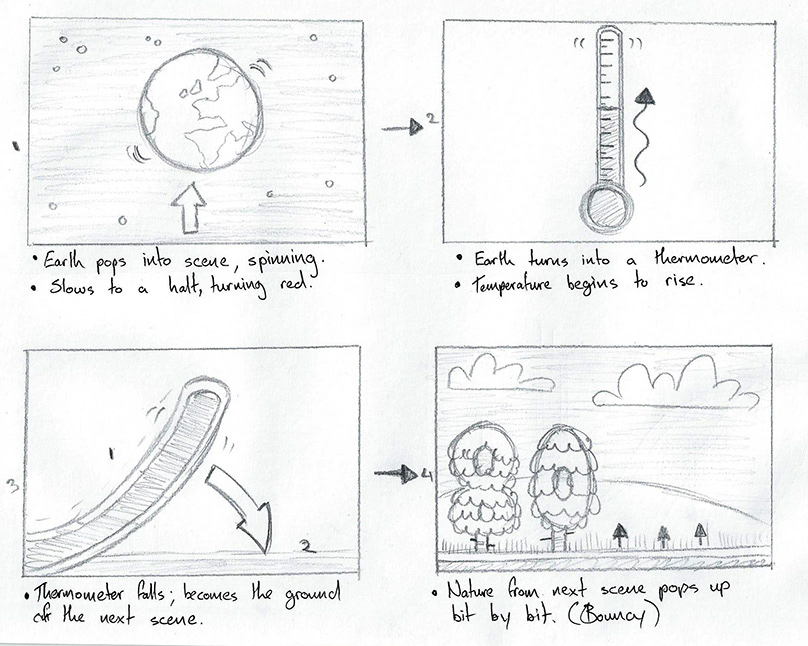 1
• Earth pops into scene, spinning.
• Slows to a halt, turning red.
2
• Earth turns into a thermometer.
• Temperature begins to rise.
3
1
2
• Thermometer falls; becomes the ground
of the next scene.
4
• Nature from next scene pops up
bit by bit. (Bouncy)